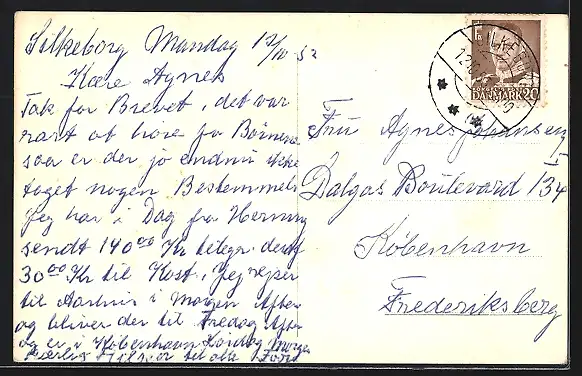 Silkeborg Mandag 12/
Kære Agnes
Tak for Brevet, det var
rart at høre fra Børnene
saa er der jo endnu ikke
taget nogen Bestemmels
Jeg har i Dag fra Herning
sendt 140 00 Kr
30 00 Kr til Kost. Jeg rejser
til Aarhus i Morgen Aften
og bliver der til Fredag Aften
og er i København Lørdag Morgen
Kærlig Hilsen til alle
Fru Agnes Johansen
Dalgas Boulevard 134
København
Frederiksberg
DANMARK 20